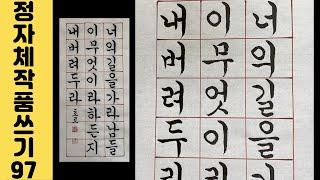 정자체작품쓰기97
너의길을가라남들
이무엇이라하든지
내버려두라
너의길을
이무엇이
내버려두